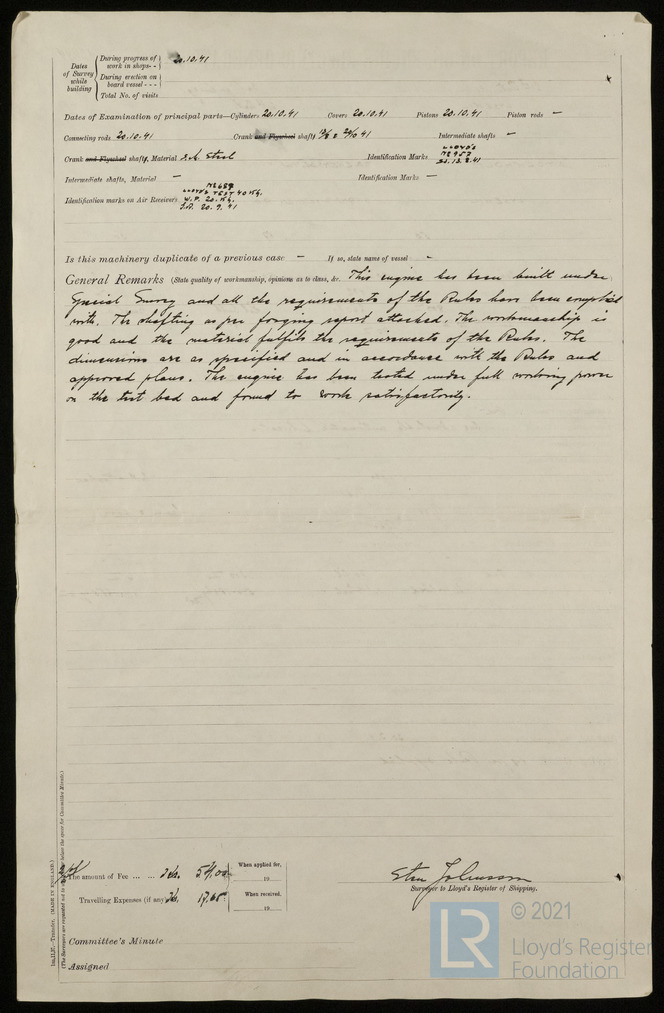 Dates of Survey while building
During progress of work in shops - - 20.10.41
During erection on board vessel - - -
Total No. of visits
Dates of Examination of principal parts—Cylinders 20.10.41 Covers 20.10.41 Pistons 20.10.41 Piston rods —
Connecting rods 20.10.41 Crank and Flywheel shafts Intermediate shafts —
Crank and Flywheel shafts, Material S.M. Steel Identification Marks LLOYD'S
Nº 957
13.8.41
Intermediate shafts, Material — Identification Marks —
Nº 689
Identification marks on Air Receivers LLOYD'S TEST 40 Kg.
W.P. 20 Kg.
20.9.41
Is this machinery duplicate of a previous case — If so, state name of vessel -
General Remarks (State quality of workmanship, opinions as to class, &c. This engine has been built under
Special Survey and all the requirements of the Rules have been complied
with. The shafting as per forging report attached. The workmanship is
good and the material fulfils the requirements of the Rules. The
dimensions are as specified and in accordance with the Rules and
approved plans. The engine has been tested under full working power
on the test bed and found to work satisfactorily.
The amount of Fee ... ... When applied for,
19
Travelling Expenses (if any) When received,
19
Sten Johansson
Surveyor to Lloyd's Register of Shipping.
Committee's Minute
Assigned
(MADE IN ENGLAND.)
(The Surveyors are requested not to write on or below the space for Committee's Minute.)
LR
© 2021
Lloyd's Register
Foundation